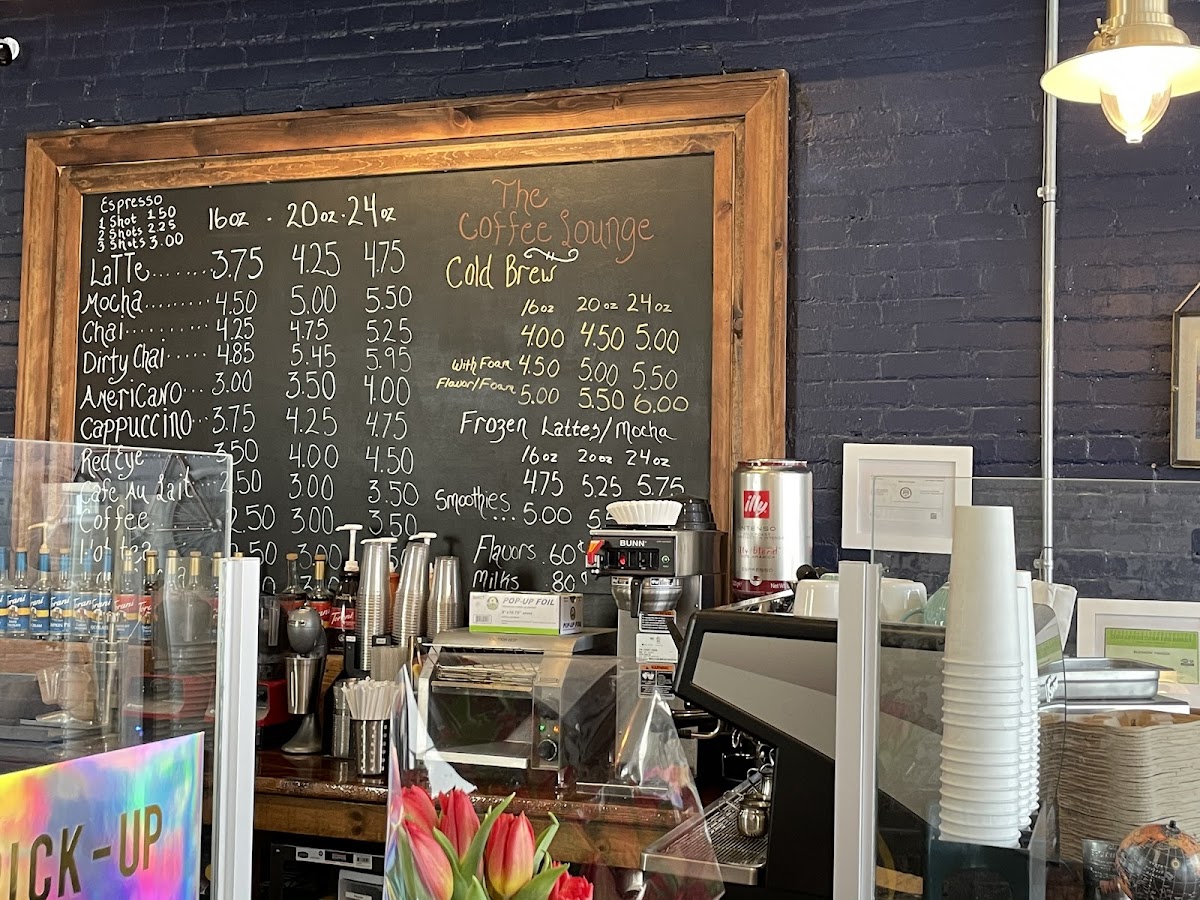 Espresso
1 Shot 1.50
2 Shots 2.25
3 Shots 3.00
16oz . 20oz . 24oz
Latte....... 3.75 4.25 4.75
Mocha........ 4.50 5.00 5.50
Chai.......... 4.25 4.75 5.25
Dirty Chai ..... 4.85 5.45 5.95
Americano... 3.00 3.50 4.00
Cappuccino... 3.75 4.25 4.75
Red Eye 3.50 4.00 4.50
Cafe Au Lait 2.50 3.00 3.50
Coffee... 2.50 3.00 3.50
The
Coffee Lounge
Cold Brew
16oz 20oz 24oz
4.00 4.50 5.00
With Foam 4.50 5.00 5.50
Flavor/Foam 5.00 5.50 6.00
Frozen Lattes/Mocha
16oz 20oz 24oz
4.75 5.25 5.75
Smoothies ... 5.00
Flavors .60¢
Milks .80¢
BUNN
illy
INTENSO
POP-UP FOIL
Torani
Torani
PICK-UP